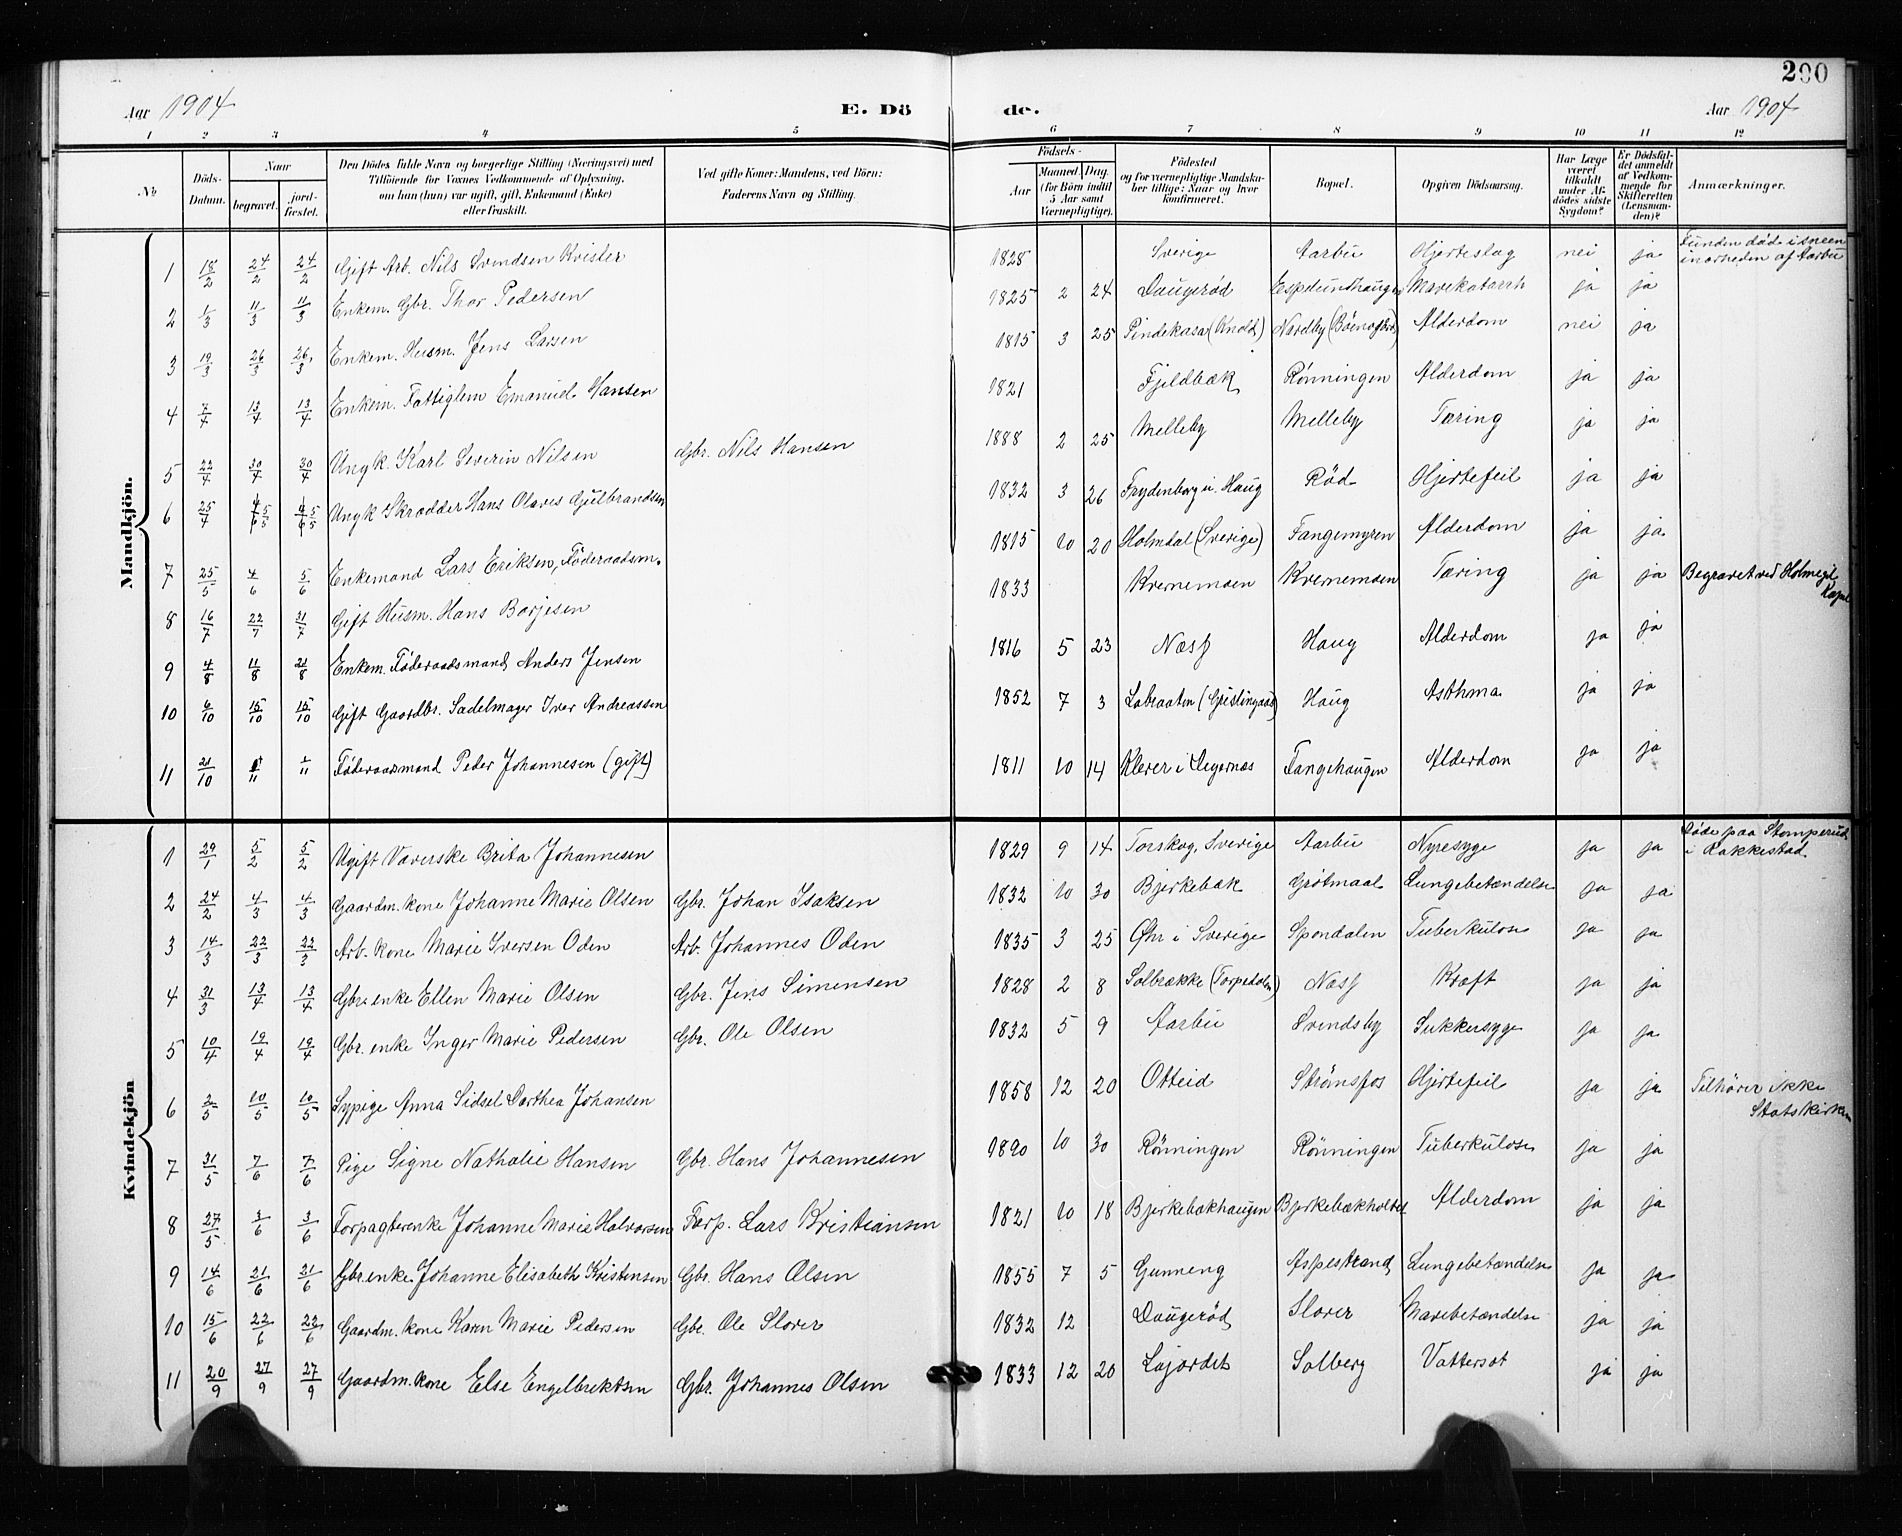 200
Aar 1904 E. Dö de. Aar 1904
1 2 3 4 5 6 7 8 9 10 11 12
No Döds-Datum. Naar begravet. jord-fæstet. Den Dödes fulde Navn og borgerlige Stilling (Næringsvei) med Tilföiende for Voxnes Vedkommende af Oplysning, om han (hun) var ugift, gift, Enkemand (Enke) eller fraskilt. Ved gifte Koner: Mandens, ved Börn: Faderens Navn og Stilling. Födsels- Aar Maaned. Dag. (for Börn indtil 5 Aar samt Værnepligtige). Födested og for værnepligtige Mandska-ber tillige: Naar og hvor konfirmeret. Bopæl. Opgiven Dödsaarsag. Har Læge været tilkaldt under Af-dödes sidste Sygdom? Er Dödsfal-det anmeldt af Vedkom-mende for Skifteretten (Lensman-den)? Anmærkninger.
Mandkjön.
1 18/2 24/2 24/2 Gift Arb. Nils Svendsen Kvister 1828 Sverige Aarbu Hjerteslag nei ja Funden död i sneen i nærheden af Aarbu
2 1/3 11/3 11/3 Enkem. Gbr. Thor Pedersen 1825 2 24 Daugerød Espelundhaugen Mavekatarrh ja ja
3 19/3 26/3 26/3 Enkem. Husm. Jens Larsen 1815 3 25 Pindekasa (Knold) Nordby Alderdom nei ja
4 7/4 13/4 13/4 Enkem. Fattiglem Emanuel Hansen 1821 Fjeldbæk Rønningen Alderdom ja ja
5 22/4 30/4 30/4 Ungk. Karl Severin Nilsen Gbr. Nils Hansen 1888 2 25 Melleby Melleby Tæring ja ja
6 25/4 5/5 5/5 Ungk Skrædder Hans Olaves Gulbrandsen 1832 3 26 Frydenborg i Haug Rød Hjertefeil ja ja
7 25/5 4/6 5/6 Enkemand Lars Eriksen, Föderaadsm. 1815 10 20 Holmdal (Sverige) Fangemyren Alderdom ja ja
8 16/7 22/7 31/7 Gift Husm. Hans Borjesen 1833 Kvernemoen Kvernemoen Tæring ja ja Begravet ved Holmegil Kapel
9 4/8 11/8 21/8 Enkem. Föderaadsmand Anders Jensen 1816 5 23 Næss Haug Alderdom ja ja
10 6/10 15/10 15/10 Gift Gaardbr. Sadelmager Iver Andreassen 1852 7 3 Labraaten Haug Asthma ja ja
11 21/10 1/11 1/11 Föderaadsmand Peder Johannesen (gift) 1811 10 14 Klever i Degernes Fangehaugen Alderdom ja ja
Kvindekjön
1 29/1 5/2 5/2 Ugift Væverske Brita Johannesen 1829 9 14 Torskog, Sverige Aarbu Nyresyge ja ja Döde paa Stomperud i Rakkestad
2 24/2 4/3 4/3 Gaardm. kone Johanne Marie Olsen Gbr. Johan Isaksen 1832 10 30 Bjerkebæk Grötmaal Lungebetændelse ja ja
3 14/3 22/3 22/3 Arb. kone Marie Iversen Oden Arb. Johannes Oden 1835 3 25 Øhr i Sverige Spondalen Tuberkulose ja ja
4 31/3 13/4 13/4 Gbr. enke Ellen Marie Olsen Gbr. Jens Simensen 1828 2 8 Solbrække (Torpedalen) Næss Kræft ja ja
5 10/4 19/4 19/4 Gbr. enke Inger Marie Pedersen Gbr. Ole Olsen 1832 5 9 Aarbu Svendsby Sukkersyge ja ja
6 3/5 10/5 10/5 Sypige Anna Sidsel Dorthea Johansen 1858 12 20 Otteid Strømsfos Hjertefeil ja ja Tilhører ikke Statskirken
7 31/5 7/6 7/6 Pige Signe Nathalie Hansen Gbr. Hans Johannesen 1890 10 30 Rønningen Rønningen Tuberkulose ja ja
8 27/5 3/6 3/6 Forpagterenke Johanne Marie Halvorsen Forp. Lars Kristiansen 1821 10 18 Bjerkebækhaugen Bjerkebækholtet Alderdom ja ja
9 14/6 21/6 21/6 Gbr. enke Johanne Elisabeth Kristensen Gbr. Hans Olsen 1855 7 5 Gunneng Aspestrand Lungebetændelse ja ja
10 15/6 22/6 22/6 Gaardm. kone Karen Marie Pedersen Gbr. Ole Slorer 1832 12 Daugerød Slorer Mavebetændelse ja ja
11 20/9 27/9 27/9 Gaardm. kone Else Engelbrektsen Gbr. Johannes Olsen 1833 12 20 Lojordet Solberg Vattersot ja ja